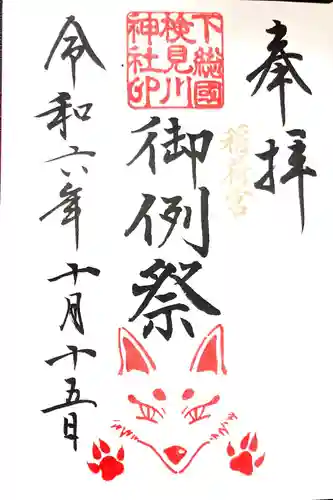 奉拝
稲荷宮
下総國
検見川
神社印
御例祭
令和六年十月十五日